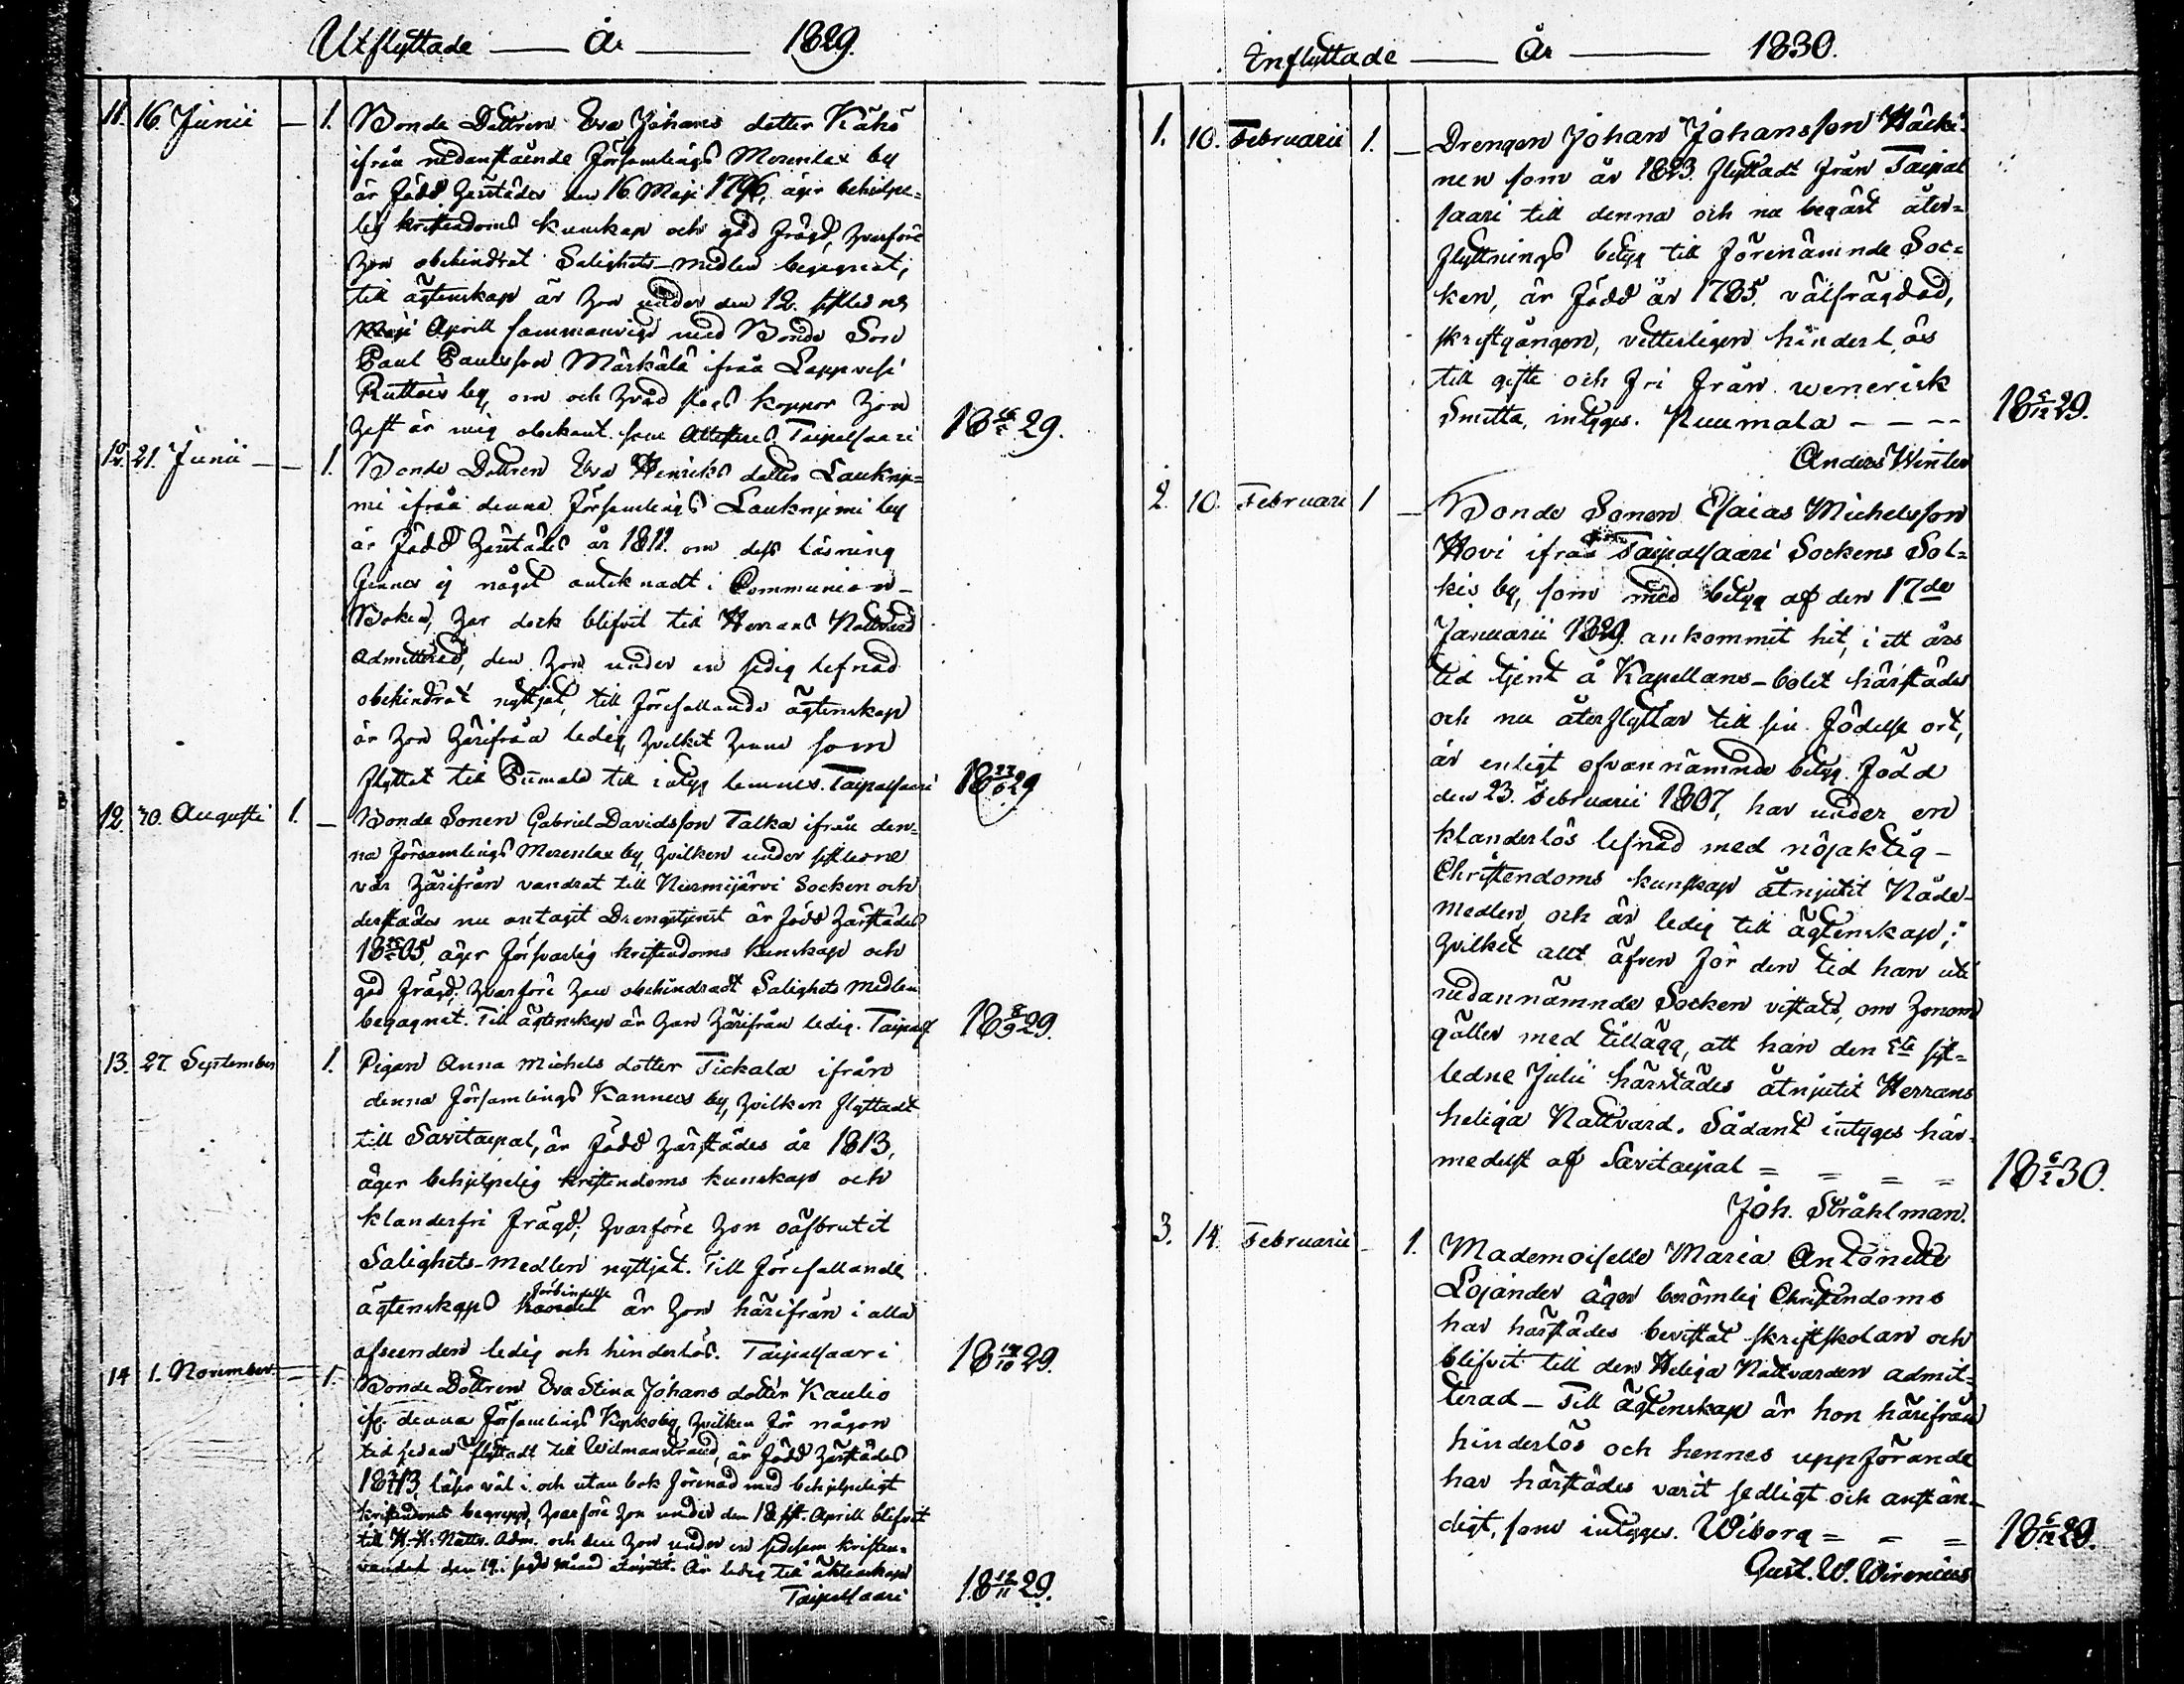 Utflyttade — År — 1829.
11. 16. Junii — 1. Bonde Dottren Eva Johans dotter Kähö
ifrån nedanstående Församlings Merenlax by
är född härstädes den 16 Maji 1796, äger behielpe-
lig kristendoms kunskap och god frägd, hvarföre
hon obehindrat Salighets-medlen begagnat,
till ägtenskap är hon under den 12. sistledne
Aprill sammanvigd med Bonde Son
Paul Paulsson Märkälä ifrån Lappvesi
Ruttois by, om och hvad slags koppor hon
haft är mig obekant. som Attesteras Taipalsaari 18 29.
12. 21. Junii — 1. Bonde Dottren Eva Henriks dotter Laukni-
mi ifrån denna Församlings Lauknjimi by
är född härstädes år 1811. om dess läsning
finnes ej något anteknadt i Communion-
Boken, har dock blifvit till Herrans Nattvard
Admitterad, den hon under en sedig lefnad
obehindrat nyttjat, till förefallande ägtenskap
är hon härifrån ledig, hvilket henne som
flyttat till Pumala till intyg lemnes. Taipalsaari 18 29
12. 30. Augusti 1. — Bonde Sonen Gabriel Davidsson Talka ifrån den-
na Församlings Merenlax by, hvilken under sistledne
vår härifrån vandrat till Nurmijärvi Socken och
derstädes nu antagit Drengstjenst är född härstädes
18 05, äger försvarlig kristendoms kunskap och
god frägd; hvarföre han obehindradt Salighets Medlen
begagnat. Till ägtenskap är han härifrån ledig. Taipals 18 8/9 29.
13. 27. September 1. Pigan Anna Michels dotter Tickala ifrån
denna Församlings Kannus by, hvilken flyttadt
till Savitaipal, är född härstädes år 1813,
äger behjelpelig kristendoms kunskap och
klanderfri frägd; hvarföre hon oafbrutit
Salighets-Medlen nyttjat. Till förefallande
förbindelse
ägtenskaps är hon härifrån i alla
afseenden ledig och hinderlös. Taipalsaari 18 14/10 29.
14 1. November — 1. Bonde Dottren Eva Stina Johans dotter Kaulio
ifr. denna Församlings by, hvilken för någon
tid sedan flyttadt till Wilmanstrand, är född härstädes
18 13, läser väl i och utan bok förenad med behjelpeligt
kristendoms begrepp, hvarföre hon under den 18 sist. Aprill blifvit
till H. H. Nattv. Adm. och den hon under en sedesam kristen-
vandel den 19. i månad åtnjutit. Är ledig till äktenskap
Taipalsaari 18 12/11 29.
Inflyttade — År — 1830.
1. 10. Februarii 1. — Drengen Johan Johansson Häcki-
nen som år 1823. flyttadt från Taipal
saari till denna och nu begärt åter-
flyttnings betyg till förenämnde Soc-
ken, är född år 1785, välfrägdad,
skriftgången, vetterligen hinderlös
till gifte och fri från wenerisk
Smitta, intyges. Puumala — — — 18 5/12 29.
Anders Winter
2. 10. Februari 1 — Bonde Sonen Esaias Michelsson
Hovi ifrån Taipalsaari Sockens Sol-
kis by, som med betyg af den 17de
Januarii 1829. ankommit hit, i ett års
tid tjent å Kapellans-bolet härstädes
och nu återflyttar till sin födelse ort,
är enligt ofvannämnde betyg född
den 23. Februarii 1807, har under en
klanderlös lefnad med nöjaktig-
Christendoms kunskap åtnjutit Nåde-
medlen, och är ledig till ägtenskap;
hvilket allt äfven för den tid han uti
nedannämnde Socken vistats, om honom
gäller med tillägg, att han den 5te sist-
ledne Julii härstädes åtnjutit Herrans
heliga Nattvard. Sådant intyges här-
medelst af Savitaipal = = = = 18 6/2 30.
Joh. Stråhlman.
3. 14 Februarii — 1. Mademoiselle Maria Antonette
Lojander äger berömlig Christendoms
har härstädes bevistat skriftskolan och
blifvit till den Heliga Nattvarden admit-
terad — Till ägtenskap är hon härifrån
hinderlös och hennes uppförande
har härstädes varit sedligt och anstän-
digt, som intyges. Wiborg = = = 18 5/12 29.
Gust. W. Wirenius